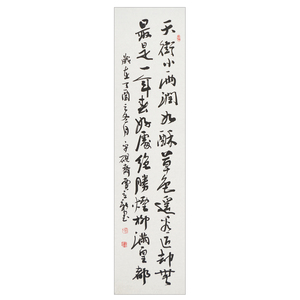 天街小雨润如酥草色遥看近却无
最是一年春好处绝胜烟柳满皇都
岁在丁酉之冬月